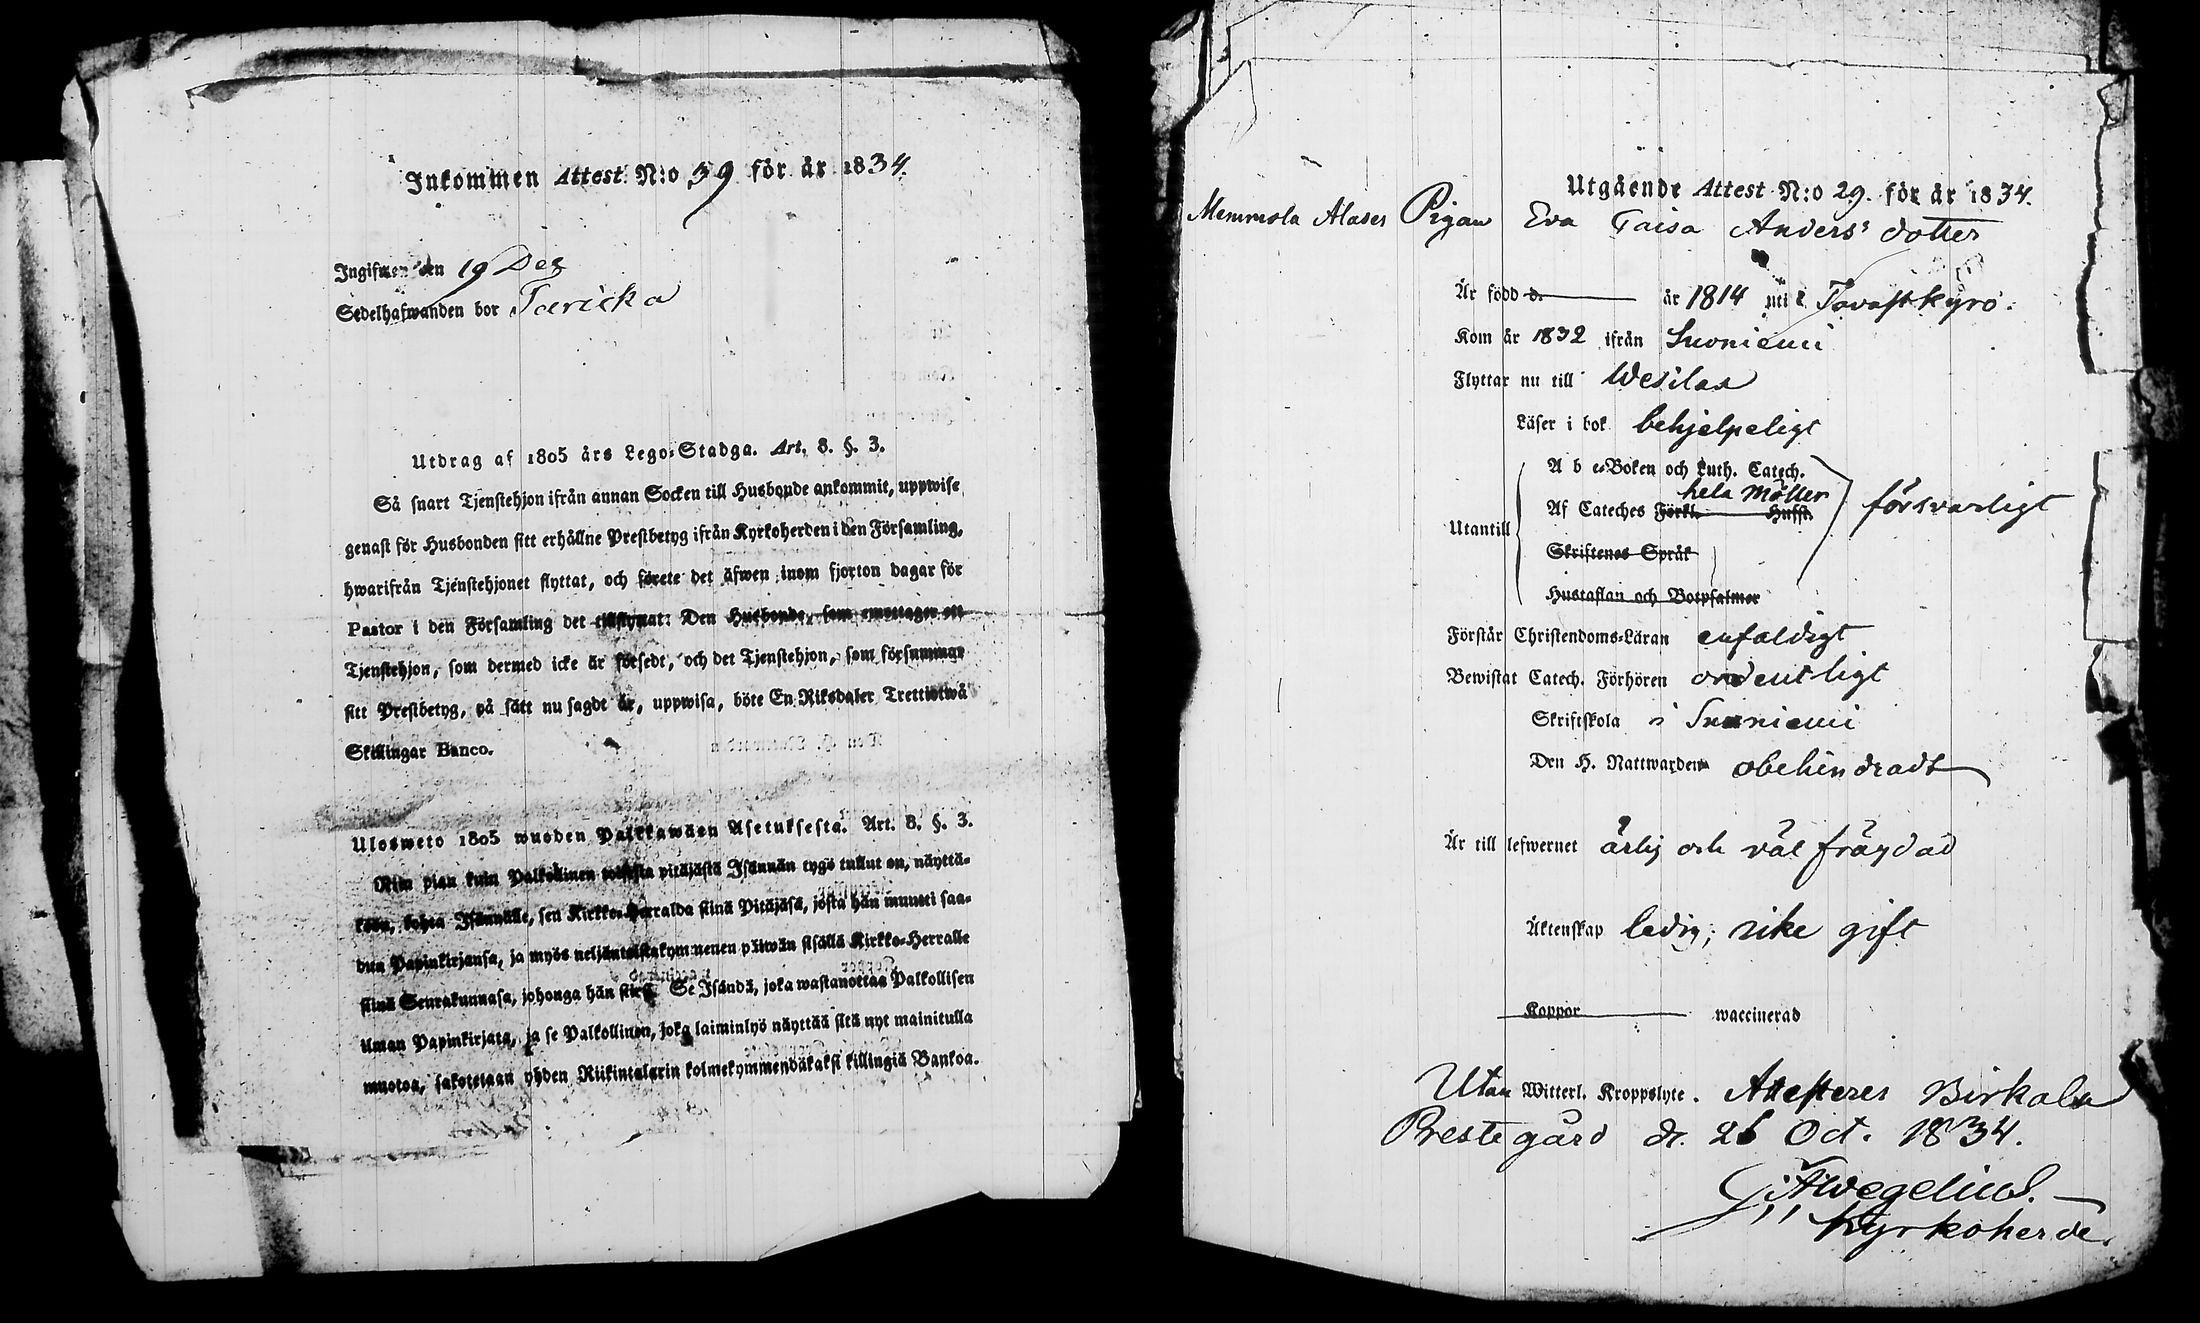 Inkommen Attest N:o 39 för år 1834.
Ingifwen den 19 Dez
Sedelhafwanden bor Taricka
Utdrag af 1805 års Lego-Stadga. Art. 8. §. 3.
Så snart Tjenstehjon ifrån annan Socken till Husbonde ankommit, uppwise
genast för Husbonden sitt erhållne Prestbetyg ifrån Kyrkoherden i den Församling,
hwarifrån Tjenstehjonet flyttat, och förete det äfwen inom fjorton dagar för
Pastor i den Församling det tillflyttat: Den Husbonde, som emottager ett
Tjenstehjon, som dermed icke är försedt, och det Tjenstehjon, som försummar
sitt Prestbetyg, på sätt nu sagdt är, uppwisa, böte En Riksdaler Trettiotwå
Skillingar Banco.
Ulosweto 1805 wuoden Palkkawäen Asetuksesta. Art. 8. §. 3.
Niin pian kuin Palkollinen toisesta pitäjästä Isännän tygö tullut on, näyttä-
kään, kohta Isännälle, sen Kirkko-Herralda siinä Pitäjäsä, josta hän muutti saa-
dun Papinkirjansa, ja myös neljäntoistakymmenen päiwän sisällä Kirkko-Herralle
siinä Seurakunnasa, johonga hän siirs. Se Isändä, joka wastanottaa Palkollisen
ilman Papinkirjata, ja se Palkollinen, joka laiminlyö näyttää sitä nyt mainitulla
muotoa, sakotetaan yhden Riikintalarin kolmekymmendäkaksi killingiä Bankoa.
Utgående Attest N:o 29. för år 1834.
Memmola Alases Pigan Eva Caisa Anders' dotter
Är född d. år 1814 uti Tavastkyro.
Kom år 1832 ifrån Suoniemi
Flyttar nu till Wesilax
Läser i bok behjelpeligt
A b c-Boken och Luth. Catech.
hela Möller
Utantill Af Cateches Förkl. Huffst. försvarligt
Skriftenes Språk
Hustaflan och Botpsalmer
Förstår Christendoms-Läran enfaldigt
Bewistat Catech. Förhören ordentligt
Skriftskola i Suoniemi
Den H. Nattwarden obehindradt
Är till lefwernet ärlig och väl frägdad
Äktenskap ledig; icke gift
Koppor waccinerad
Utan Witterl. Kroppslyte. Attesteres Birkala
Prestegård d. 26 Oct. 1834.
Wegelius.
Kyrkoherde.